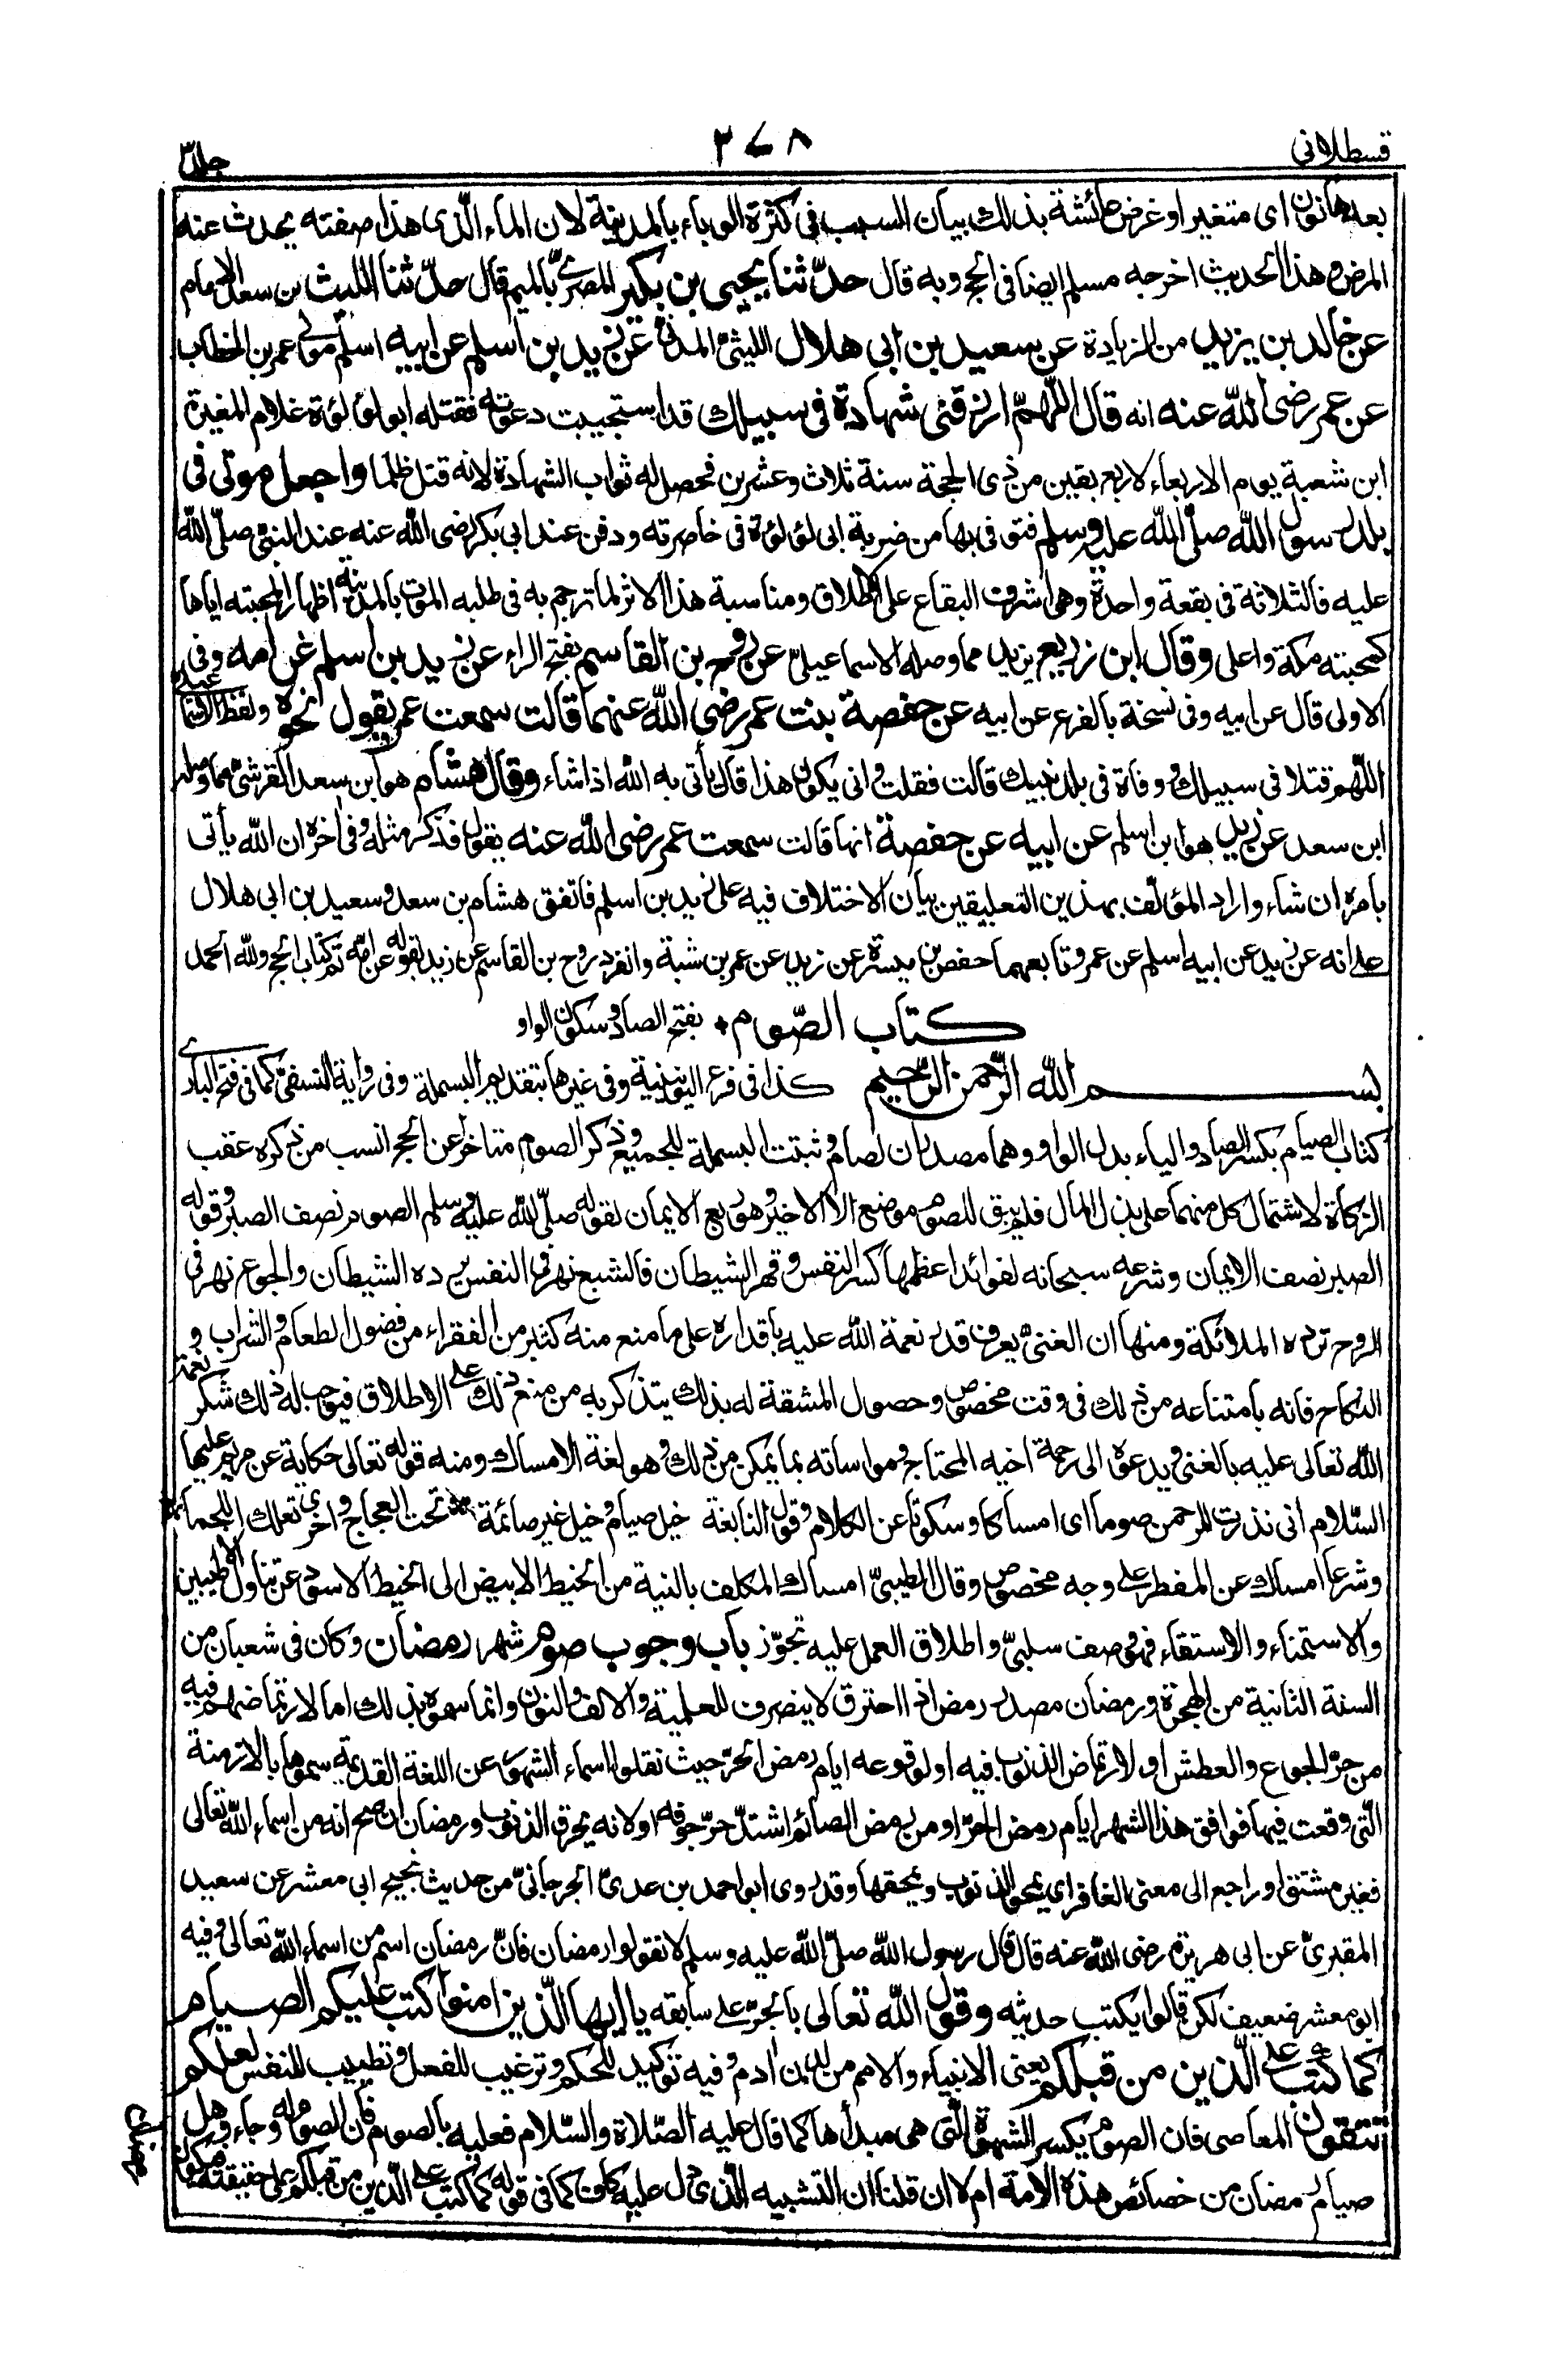 قسطلانی ٢٧٨ جلد ٣
بعدها نون ای متغیر او غرض عائشة بذلك بیان السبب فی کثرة الوباء بالمدینة لان الماء الّذی هذا صفته یحدث عنه
المرض وهذا الحدیث اخرجه مسلم ایضا فی الحج وبه قال حدّثنا یحیی بن بکیر المصریّ بالمیم قال حدّثنا اللیث بن سعد الامام
عن خالد بن یزید من الزیادة عن سعید بن ابی هلال اللیثیّ المدنیّ عن زید بن اسلم عن ابیه اسلم مولی عمر بن الخطاب
عن عمر رضی اللّٰه عنه انه قال اللّٰهمّ ارزقنی شهادة فی سبیلك قد استجیبت دعوته فقتله ابو لؤلؤة غلام المغیرة
ابن شعبة یوم الاربعاء لاربع بقین من ذی الحجة سنة ثلاث وعشرین فحصل له ثواب الشهادة لانه قتل ظلما واجعل موتی فی
بلد رسول اللّٰه صلّی اللّٰه علیه وسلم فتوفی بها من ضربة ابی لؤلؤة فی خاصرته ودفن عند ابی بکر رضی اللّٰه عنه عند النبیّ صلّی اللّٰه
علیه فالثلاثة فی بقعة واحدة وهی اشرف البقاع علی الاطلاق ومناسبة هذا الاثر لما ترجم به فی طلبه الموت بالمدینة اظهارا لمحبته ایاها
کمحبته مکة واعلی وقال ابن زریع یزید مما وصله الاسماعیلیّ عن روح بن القاسم بفتح الراء عن زید بن اسلم عن امه وفی
الاولی قال عن ابیه وفی نسخة بالفرع عن ابیه عن حفصة بنت عمر رضی اللّٰه عنهما قالت سمعت عمر یقول نحوه ولفظ الاسماعیلی
اللّٰهم قتلا فی سبیلك ووفاة فی بلد نبیك قالت فقلت وانی یکون هذا قال یأتی به اللّٰه اذا شاء وقال هشام هو ابن سعد القرشیّ مما وصله
ابن سعد عن زید هو ابن اسلم عن ابیه عن حفصة انها قالت سمعت عمر رضی اللّٰه عنه یقول فذکر مثله وفی اٰخره ان اللّٰه یأتی
بامره ان شاء واراد المؤلّف بهذین التعلیقین بیان الاختلاف فیه علی زید بن اسلم فاتفق هشام بن سعد وسعید بن ابی هلال
علی انه عن زید عن ابیه اسلم عن عمر وتابعهما حفص بن میسرة عن زید عن عمر بن شبة وانفرد روح بن القاسم عن زید بقوله عن امّه تم کتاب الحج وللّٰه الحمد
کتاب الصّوم بفتح الصاد وسکون الواو
بسم اللّٰه الرّحمن الرّحیم کذا فی فرع الیونینیة وفی غیرها بتقدیم البسملة وفی روایة النسفیّ کما فی فتح الباری
کتاب الصیام بکسر الصاد والیاء بدل الواو وهما مصدران لصام وثبتت البسملة للجمیع وذکر الصوم متاخرا عن الحج انسب من ذکره عقب
الزکاة لاشتمال کل منهما علی بذل المال فلم یبق للصوم موضع الا الاخیر وهو ربع الایمان لقوله صلّی اللّٰه علیه وسلم الصوم نصف الصبر وقوله
الصبر نصف الایمان وشرعه سبحانه لفوائد اعظمها کسر النفس وقهر الشیطان فالشبع نهر فی النفس یرده الشیطان والجوع نهر فی
الروح ترده الملائکة ومنها ان الغنیّ یعرف قدر نعمة اللّٰه علیه باقداره علی ما منع منه کثیر من الفقراء من فضول الطعام والشراب و
النکاح فانه بامتناعه من ذلك فی وقت مخصوص وحصول المشقة له بذلك یتذکر به من منع ذلك علی الاطلاق فیوجب له ذلك شکر نعمة
اللّٰه تعالی علیه بالغنی ویدعوه الی رحمة اخیه المحتاج ومواساته بما یمکن من ذلك وهو لغة الامساك ومنه قوله تعالی حکایة عن مریم علیها
السّلام انی نذرت للرحمن صوما ای امساکا وسکوتا عن الکلام وقول النابغة خیل صیام وخیل غیر صائمة تحت العجاج واخری تعلك اللجما
وشرعا امساك عن المفطر علی وجه مخصوص وقال الطیبیّ امساك المکلف بالنیة من الخیط الابیض الی الخیط الاسود عن تناول الاطیبین
والاستمناء والاستقاء فهو وصف سلبیّ واطلاق العمل علیه تجوّز باب وجوب صوم شهر رمضان وکان فی شعبان من
السنة الثانیة من الهجرة ورمضان مصدر رمض اذا احترق لا ینصرف للعلمیة والالف والنون وانما سموه بذلك اما لارتماضهم فیه
من حرّ الجوع والعطش او لارتماض الذنوب فیه او لوقوعه ایام رمض الحرّ حیث نقلوا اسماء الشهور عن اللغة القدیمة سموها بالازمنة
الّتی وقعت فیها فوافق هذا الشهر ایام رمض الحرّ او من رمض الصائم اشتدّ حرّ جوفه او لانه یحرق الذنوب ورمضان ان صح انه من اسماء اللّٰه تعالی
فغیر مشتق او راجع الی معنی الغافر ای یمحو الذنوب ویمحقها وقد روی ابو احمد بن عدیّ الجرجانیّ من حدیث نجیح ابی معشر عن سعید
المقبریّ عن ابی هریرة رضی اللّٰه عنه قال قال رسول اللّٰه صلّی اللّٰه علیه وسلم لا تقولوا رمضان فانّ رمضان اسم من اسماء اللّٰه تعالی وفیه
ابو معشر ضعیف لکن قالوا یکتب حدیثه وقول اللّٰه تعالی بالجرّ علی سابقه یا ایها الّذین اٰمنوا کتب علیکم الصیام
کما کتب علی الّذین من قبلکم یعنی الانبیاء والامم من لدن اٰدم وفیه توکید للحکم وترغیب للفعل وتطییب للنفس لعلکم
تتقون المعاصی فان الصوم یکسر الشهوة الّتی هی مبدأها کما قال علیه الصّلاة والسّلام فعلیه بالصوم فان الصوم له وجاء وهل
صیام رمضان من خصائص هذه الامة ام لا ان قلنا ان التشبیه الّذی دل علیه کاف کما فی قوله کما کتب علی الّذین من قبلکم علی حقیقته فیکون